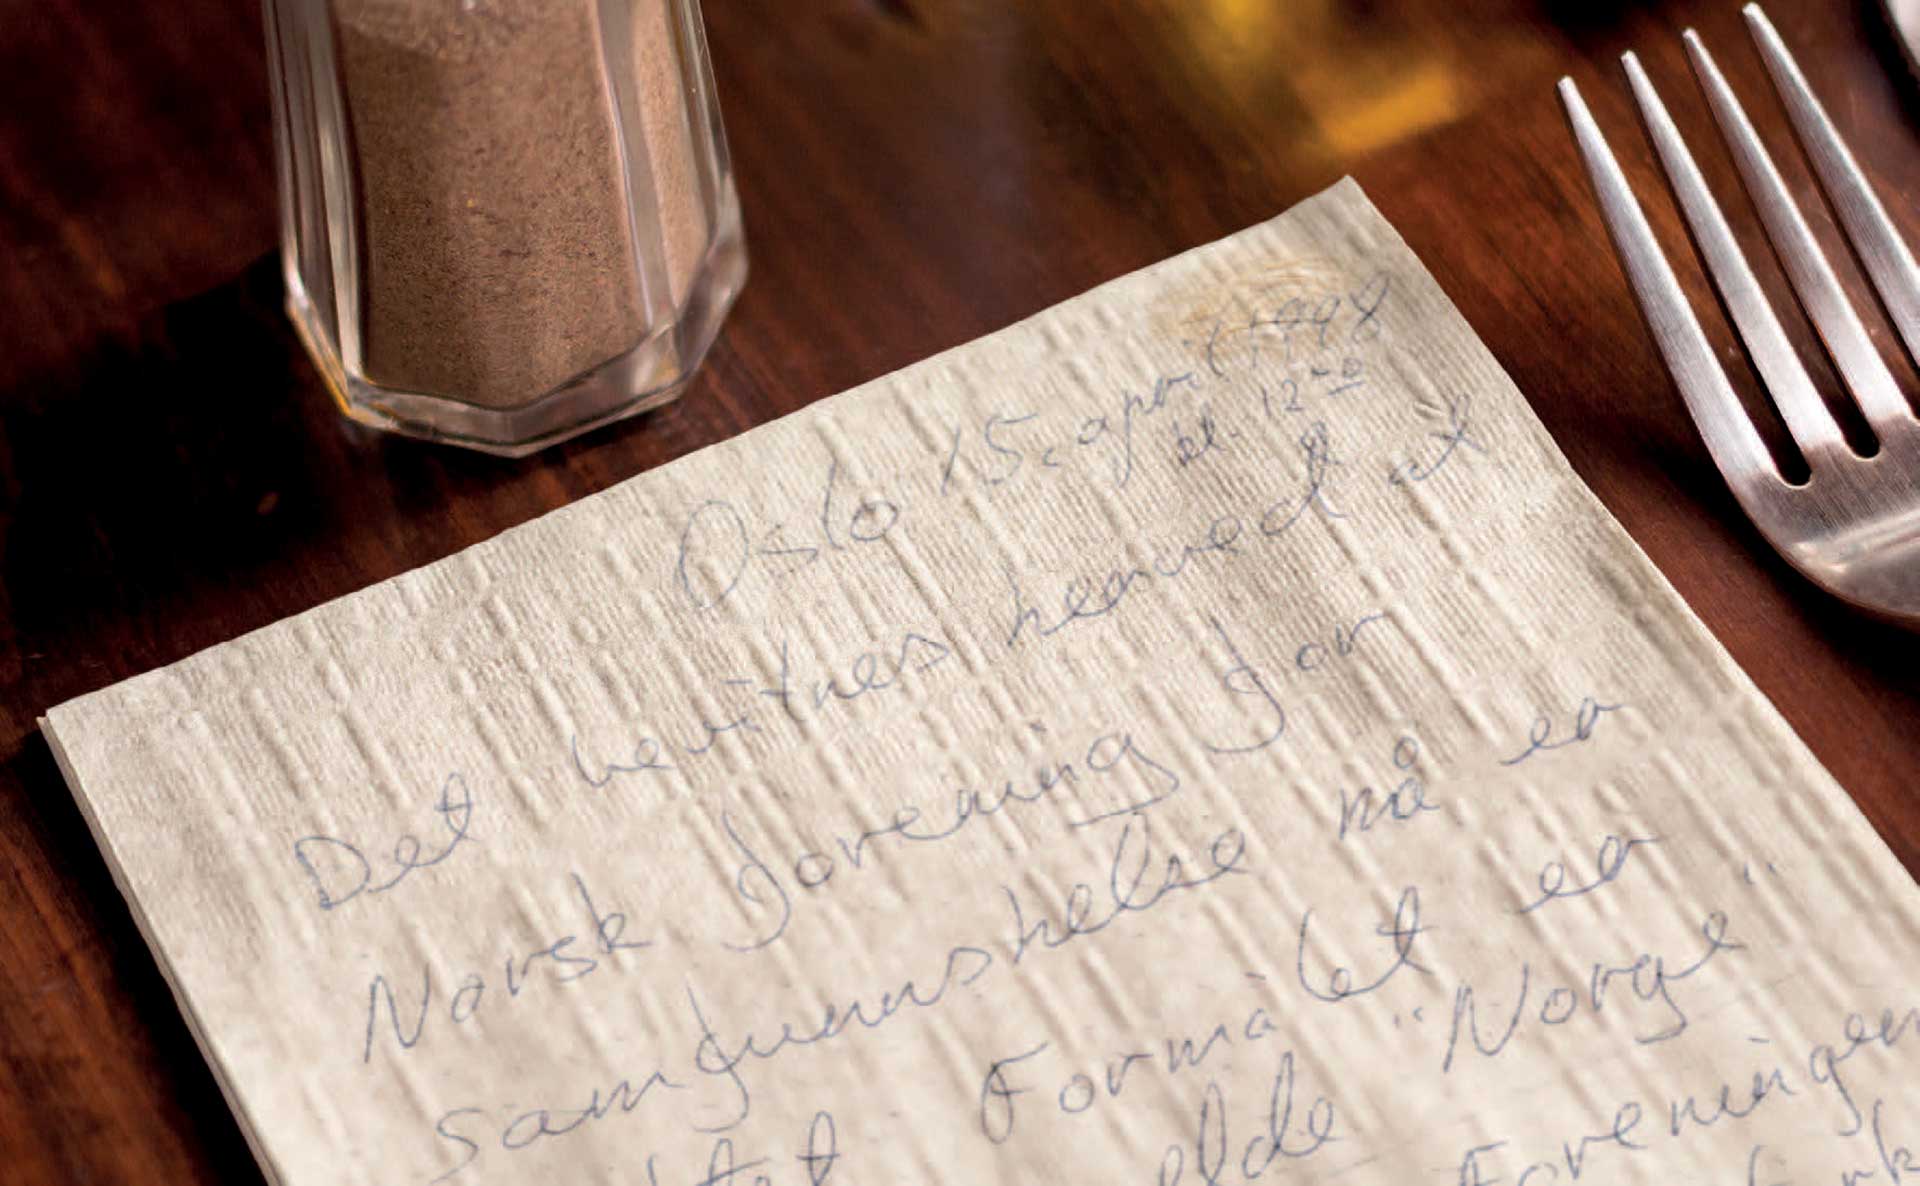 Oslo 15. april 1998
kl. 12-0
Det bevitnes herved at
Norsk Forening for
samfunnshelse nå er
Formålet er
"Norge"
Foreningen